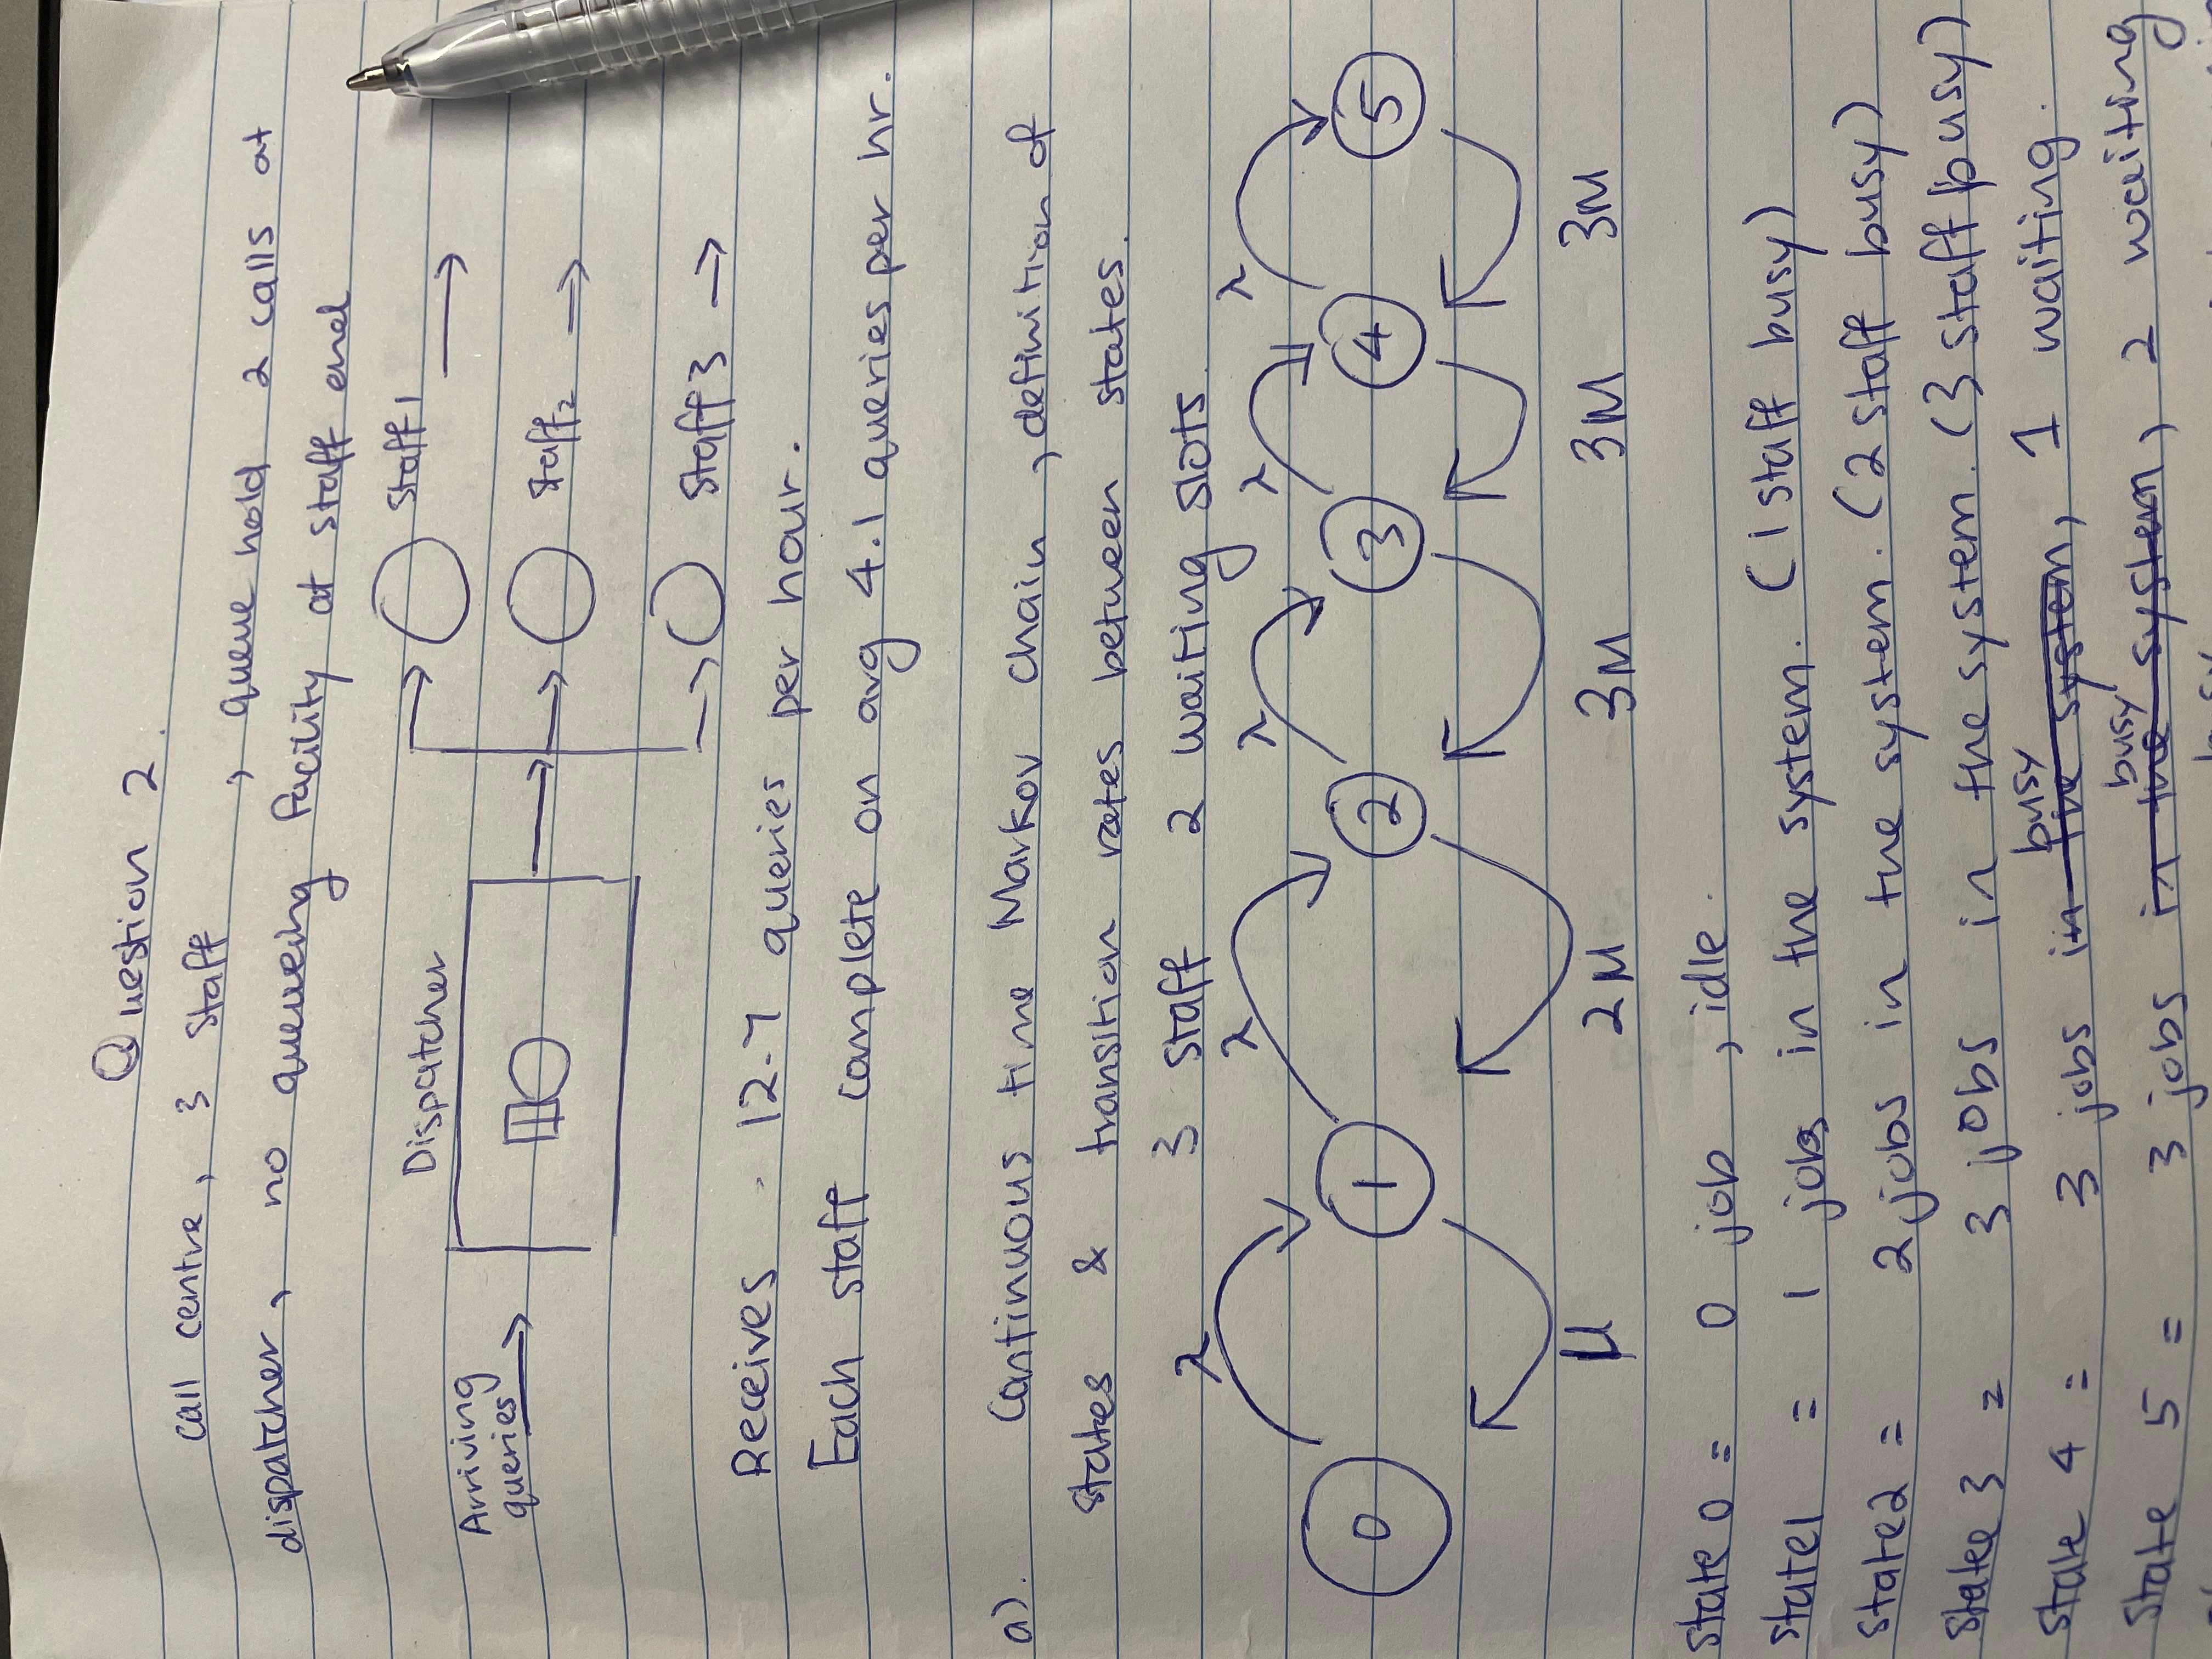 Question 2.
call centre, 3 staff, queue hold 2 calls at
dispatcher, no queueing facility at staff end
Dispatcher
Arriving
queries
Staff 1
Staff 2
Staff 3
Receives . 12.7 queries per hour.
Each staff complete on avg 4.1 queries per hr.
a). Continuous time Markov chain, definition of
states & transition rates between states.
3 staff 2 waiting slots
λ λ λ λ λ
0 1 2 3 4 5
μ 2μ 3μ 3μ 3μ
state 0 = 0 job, idle.
state 1 = 1 jobs in the system. (1 staff busy)
state 2 = 2 jobs in the system. (2 staff busy)
state 3 = 3 jobs in the system. (3 staff busy)
busy
state 4 = 3 jobs in the system, 1 waiting.
busy
state 5 = 3 jobs in the system, 2 waiting